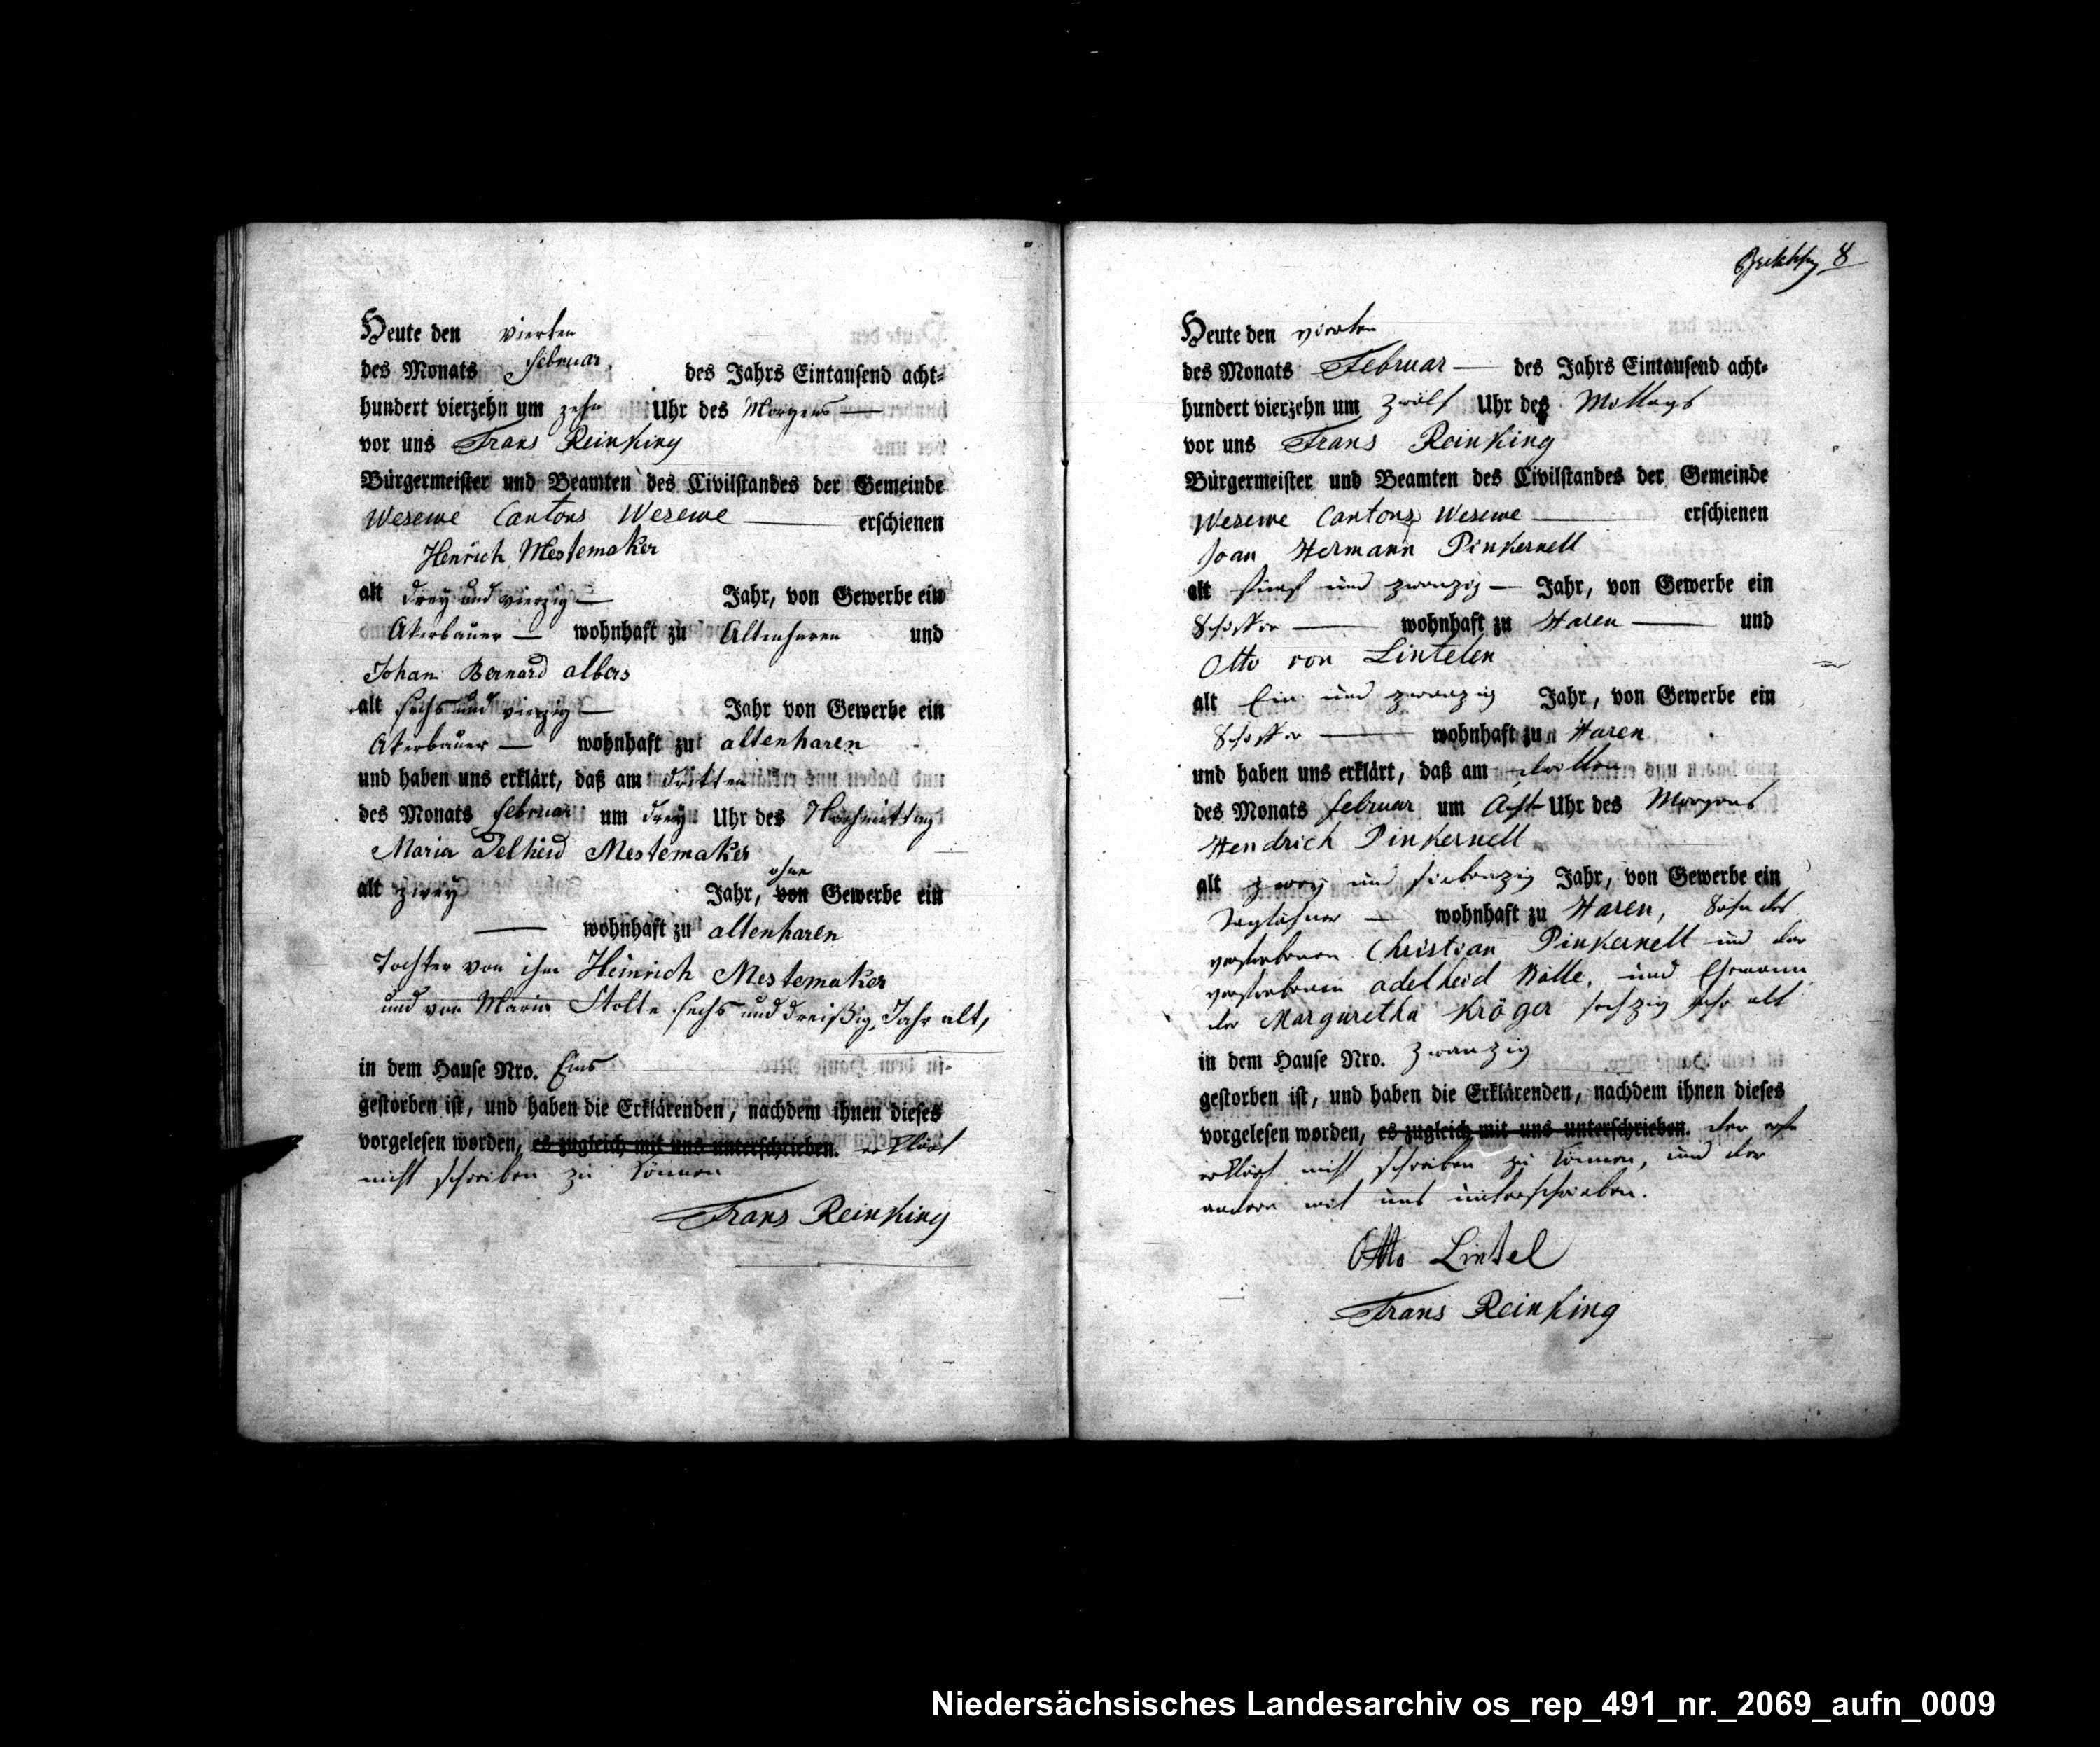 Heute den vierten
des Monats februar des Jahrs Eintausend acht-
hundert vierzehn um zehn Uhr des Morgens —
vor uns Frans Reinking
Bürgermeister und Beamten des Civilstandes der Gemeinde
Wesewe Cantons Wesewe — erschienen
Henrich Mestemaker
alt drey und vierzig — Jahr, von Gewerbe ein
Akerbauer — wohnhaft zu Altenharen und
Johan Bernard albers
alt sechs und vierzig — Jahr von Gewerbe ein
Akerbauer — wohnhaft zu altenharen
und haben uns erklärt, daß am dritten
des Monats februar um drey Uhr des Nachmittag
Maria Delheid Mestemaker
alt zwey Jahr, ohne von Gewerbe ein
— wohnhaft zu altenharen
Tochter von ihm Heinrich Mestemaker
und von Maria Stolte sechs und dreißig Jahr alt,
in dem Hause Nro. Eins
gestorben ist, und haben die Erklärenden, nachdem ihnen dieses
vorgelesen worden, es zugleich mit uns unterschrieben. erklärt
nicht schreiben zu können
Frans Reinking
8
Heute den vierten
des Monats Februar — des Jahrs Eintausend acht-
hundert vierzehn um zwölf Uhr des Mittags
vor uns Frans Reinking
Bürgermeister und Beamten des Civilstandes der Gemeinde
Wesewe Cantons Wesewe — erschienen
Joan Hermann Pinkernell
alt fünf und zwanzig — Jahr, von Gewerbe ein
Schiffer — wohnhaft zu Haren — und
Otto von Lintelen
alt Ein und zwanzig Jahr, von Gewerbe ein
Schiffer — wohnhaft zu Haren
und haben uns erklärt, daß am dritten
des Monats februar um Acht Uhr des Morgens
Hendrich Pinkernell
alt zwey und siebenzig Jahr, von Gewerbe ein
Taglöhner — wohnhaft zu Haren, Sohn des
verstorbenen Christian Pinkernell und der
verstorbenen adelheid Rölle, und Ehemann
der Margaretha Kröger sechzig Jahr alt
in dem Hause Nro. zwanzig
gestorben ist, und haben die Erklärenden, nachdem ihnen dieses
vorgelesen worden, es zugleich mit uns unterschrieben. der erste
erklärt nicht schreiben zu können, und der
andere mit uns unterschrieben.
Otto Lintel
Frans Reinking
Niedersächsisches Landesarchiv os_rep_491_nr._2069_aufn_0009